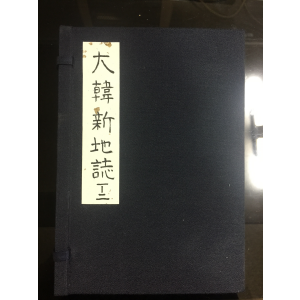 大韓新地誌 一二